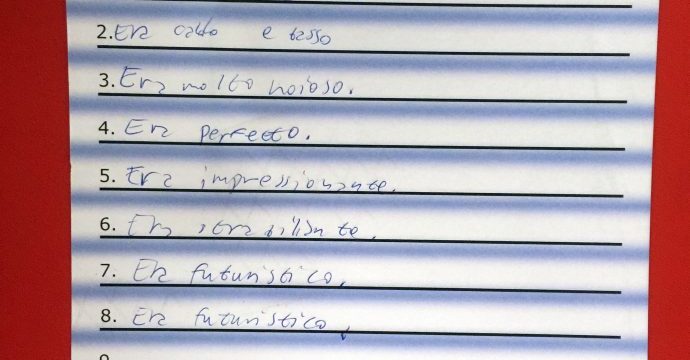 2. Era caldo e basso
3. Era molto noioso.
4. Era perfetto.
5. Era impressionante.
6. Era strabiliante.
7. Era futuristico.
8. Era futuristico.
9